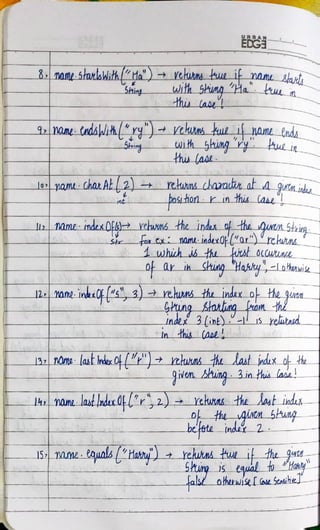 URBAN
EDGE
8> name.startsWith("Ha") → returns true if name starts
String with string "Ha". true in
this case!
9> name.endsWith("ry") → returns true if name ends
String with string "ry". true in
this case.
10> name.charAt(2) → returns character at a given index
int position r in this case!
11> name.indexOf(s) → returns the index of the given string.
str for ex: name.indexOf("ar") returns
1 which is the first occurence
of ar in string "Harry", -1 otherwise
12> name.indexOf("s", 3) → returns the index of the given
string starting from the
index 3 (int). -1 is returned
in this case!
13> name.lastIndexOf("r") → returns the last index of the
given string. 3 in this case!
14> name.lastIndexOf("r", 2) → returns the last index
of the given string
before index 2.
15> name.equals("Harry") → returns true if the given
string is equal to "Harry"
false otherwise [Case Sensitive]